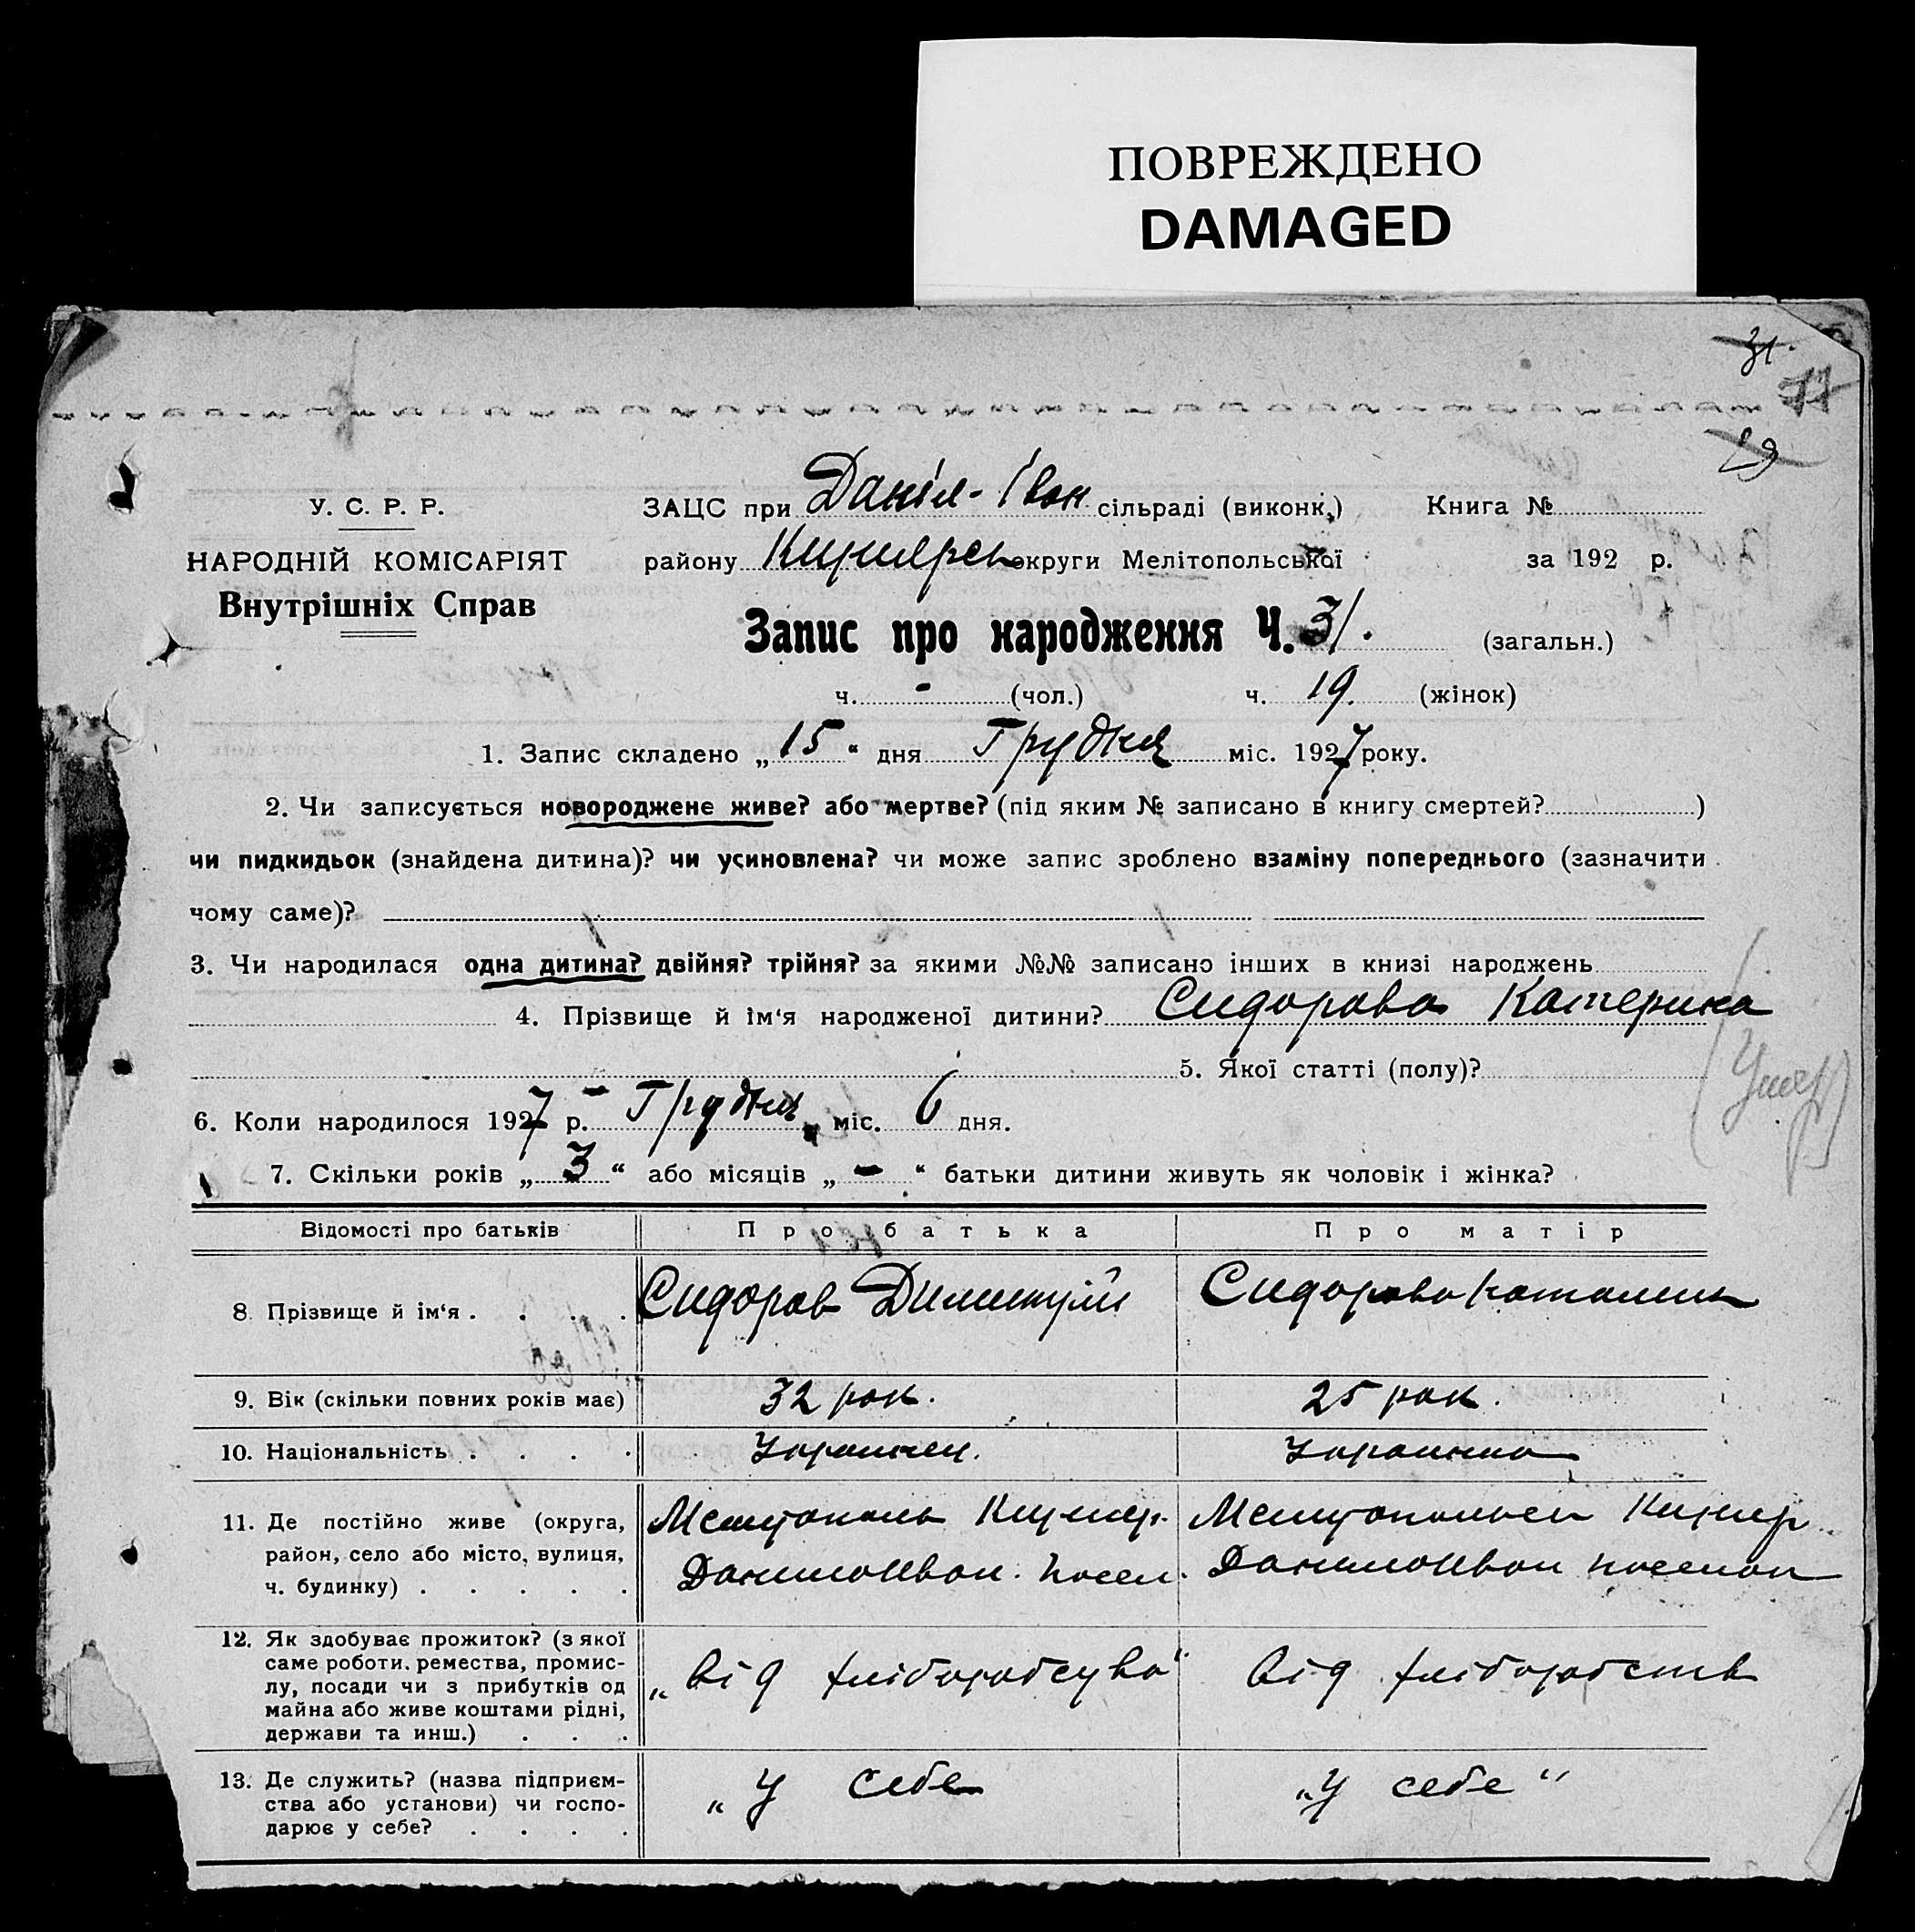 ПОВРЕЖДЕНО
DAMAGED
31.
77
29
У. С. Р. Р.
НАРОДНІЙ КОМІСАРІЯТ
Внутрішніх Справ
ЗАЦС при Даніл-Іван сільраді (виконк.) Книга №
району округи Мелітопольської за 192 р.
Запис про народження Ч. 31. (загальн.)
ч. - (чол.) ч. 19. (жінок)
1. Запис складено „15“ дня Грудня міс. 1927 року.
2. Чи записується новороджене живе? або мертве? (під яким № записано в книгу смертей? )
чи пидкидьок (знайдена дитина)? чи усиновлена? чи може запис зроблено взаміну попереднього (зазначити
чому саме)?
3. Чи народилася одна дитина? двійня? трійня? за якими №№ записано інших в книзі народжень
4. Прізвище й ім‘я народженої дитини? Сидорова Катерина
5. Якої статті (полу)?
6. Коли народилося 1927 р. Грудня міс. 6 дня.
7. Скільки років „3“ або місяців „-“ батьки дитини живуть як чоловік і жінка?
Відомості про батьків Про батька Про матір
8 Прізвище й ім‘я . . . . Сидоров Дишитрій Сидорова
9. Вік (скільки повних років має) 32 рок. 25 рок.
10. Національність . . . . Українец. Українка
11. Де постійно живе (округа,
район, село або місто, вулиця,
ч. будинку) . . . . .
ДанилоИван. посел. ДанилоИван поселок
12. Як здобуває прожиток? (з якої
саме роботи, ремества, промис-
лу, посади чи з прибутків од
майна або живе коштами рідні,
держави та инш.) . . .
„Від хліборобства“ Від хліборобств
13. Де служить? (назва підприєм-
ства або установи) чи госпо-
дарює у себе? . . . .
„У себе „У себе“